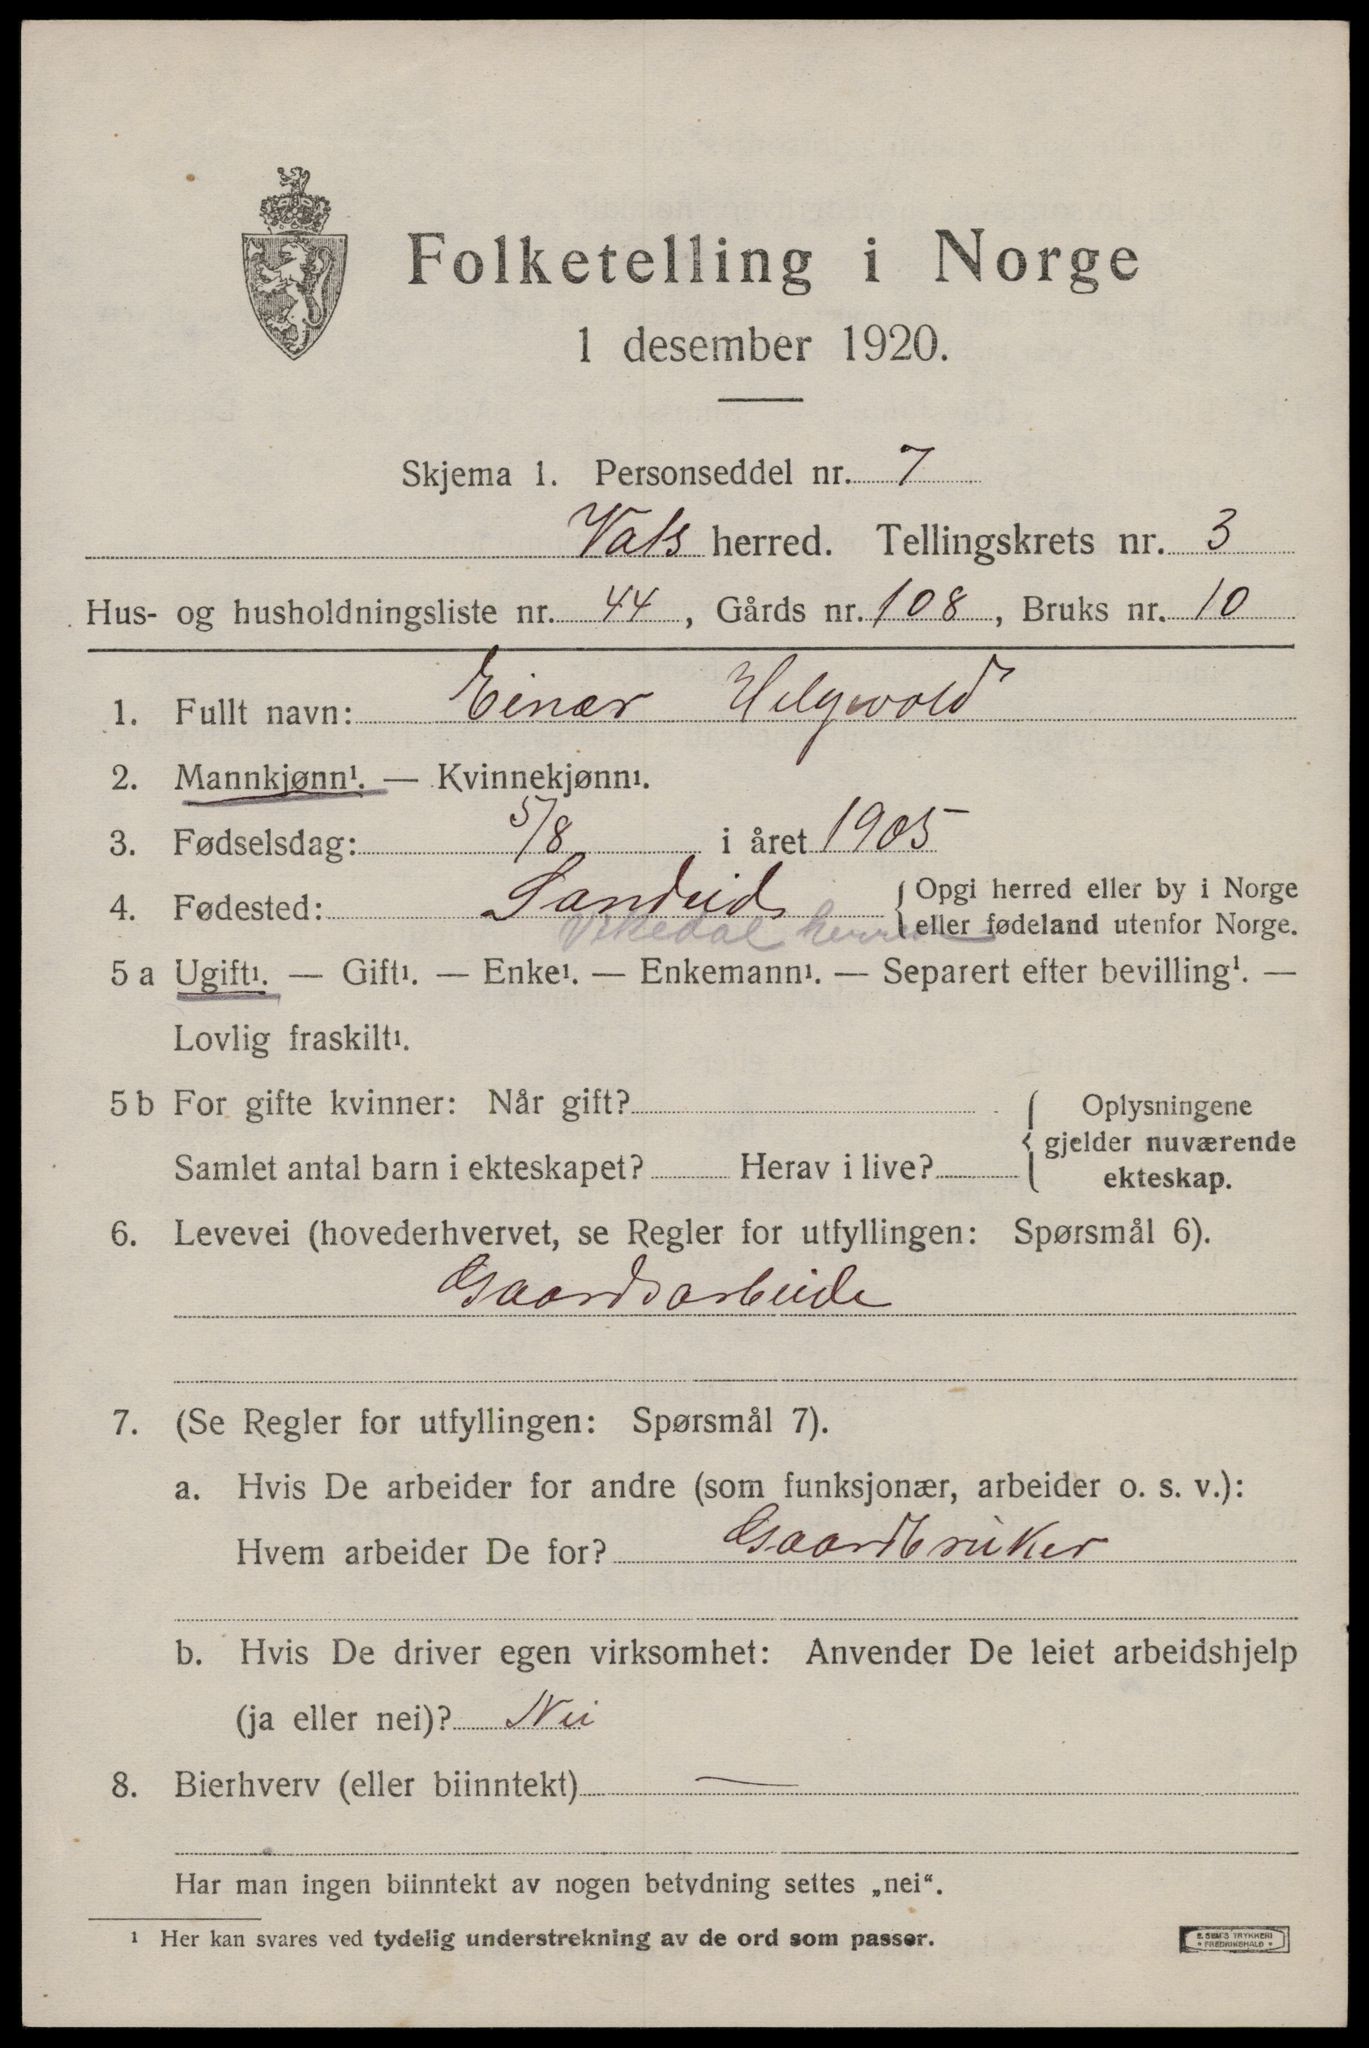 Folketelling i Norge
1 desember 1920.
Skjema 1. Personseddel nr. 7
Vats herred. Tellingskrets nr. 3
Hus- og husholdningsliste nr. 44, Gårds nr. 108, Bruks nr. 10
1. Fullt navn: Einar Helgevold
2. Mannkjønn¹. — Kvinnekjønn¹.
3. Fødselsdag: 5/8 i året 1905
4. Fødested: Sandeid { Opgi herred eller by i Norge
eller fødeland utenfor Norge.
Vikedal herred
5 a Ugift¹. — Gift¹. — Enke¹. — Enkemann¹. — Separert efter bevilling¹. —
Lovlig fraskilt¹.
5 b For gifte kvinner: Når gift? { Oplysningene
gjelder nuværende
Samlet antal barn i ekteskapet? Herav i live? ekteskap.
6. Levevei (hovederhvervet, se Regler for utfyllingen: Spørsmål 6).
Gaardsarbeide
7. (Se Regler for utfyllingen: Spørsmål 7).
a. Hvis De arbeider for andre (som funksjonær, arbeider o. s. v.):
Hvem arbeider De for? Gaardbruker
b. Hvis De driver egen virksomhet: Anvender De leiet arbeidshjelp
(ja eller nei)? Nei
8. Bierhverv (eller biinntekt) —
Har man ingen biinntekt av nogen betydning settes „nei“.
¹ Her kan svares ved tydelig understrekning av de ord som passer.
E. SEM'S TRYKKERI
• FREDRIKSHALD •